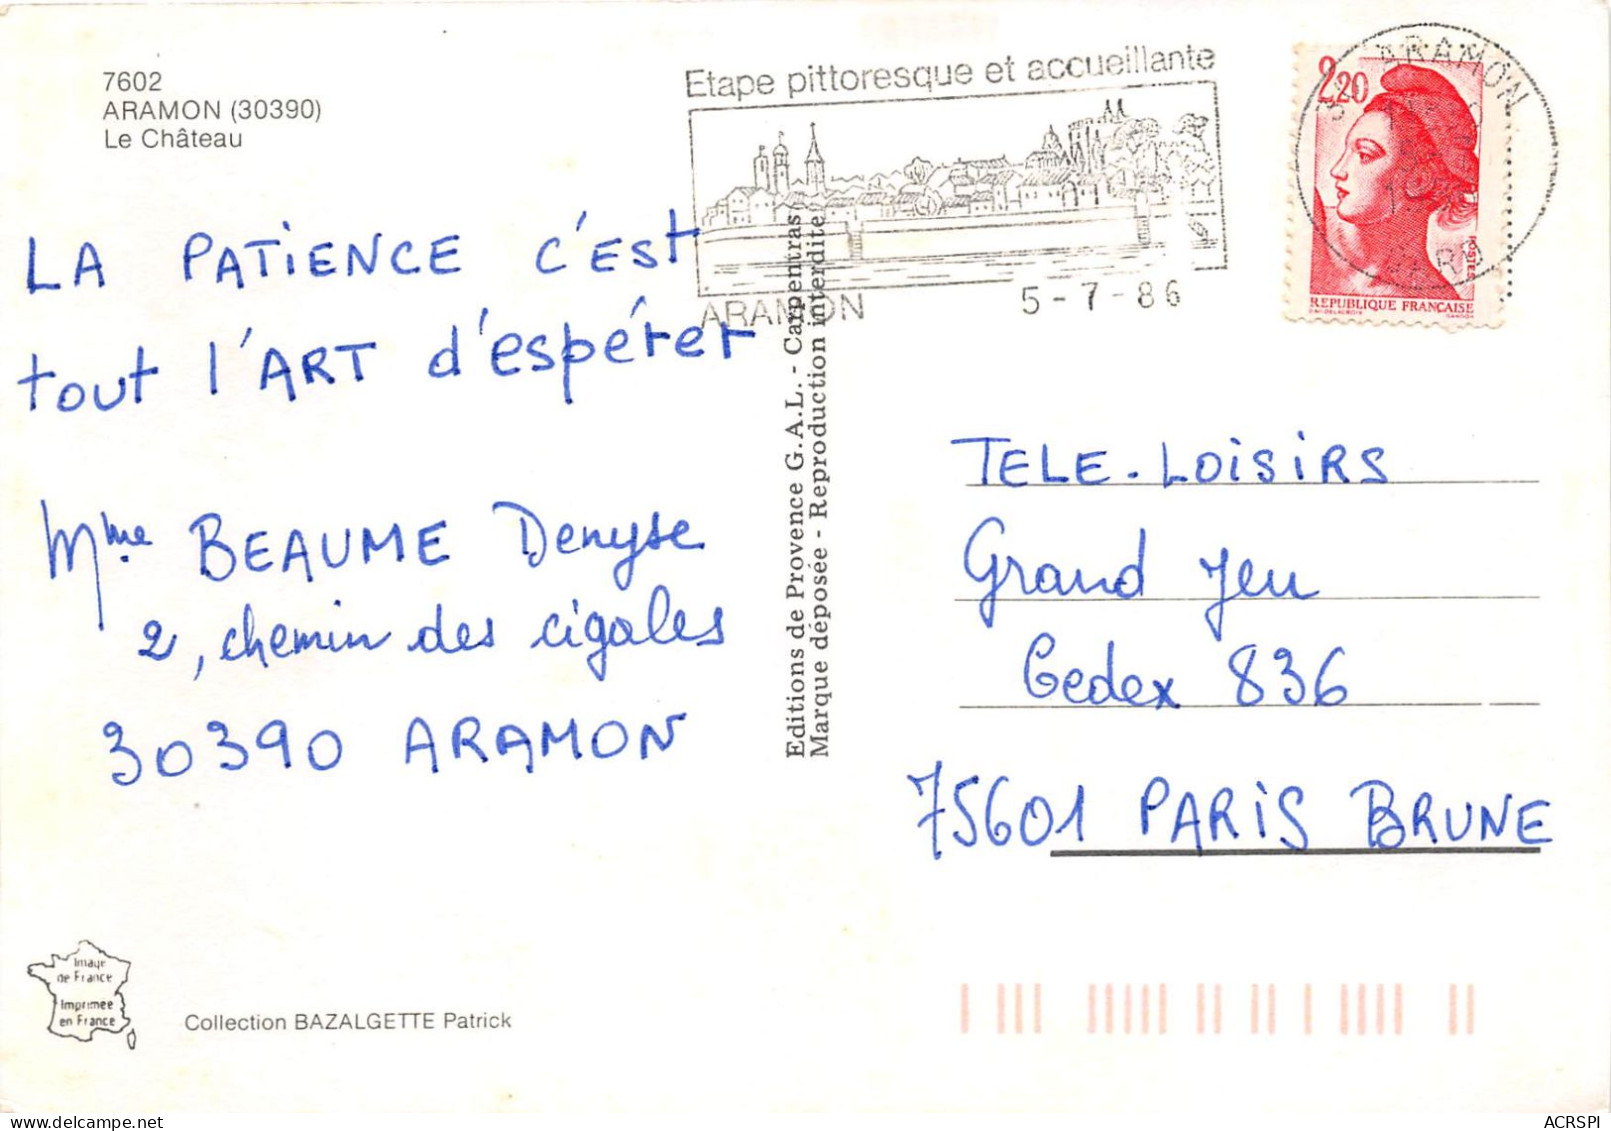 7602
ARAMON (30390)
Le Château
Etape pittoresque et accueillante
ARAMON
5-7-86
ARAMON
2,20
POSTES
REPUBLIQUE FRANÇAISE
LA PATIENCE C'EST
tout l'ART d'espérer
Mme BEAUME Denyse
2, chemin des cigales
30390 ARAMON
Editions de Provence G.A.L. - Carpentras
Marque déposée - Reproduction interdite
TELE-LOISIRS
Grand Jeu
Cedex 836
75601 PARIS BRUNE
Image
de France
Imprimee
en France
Collection BAZALGETTE Patrick
ACRSPI